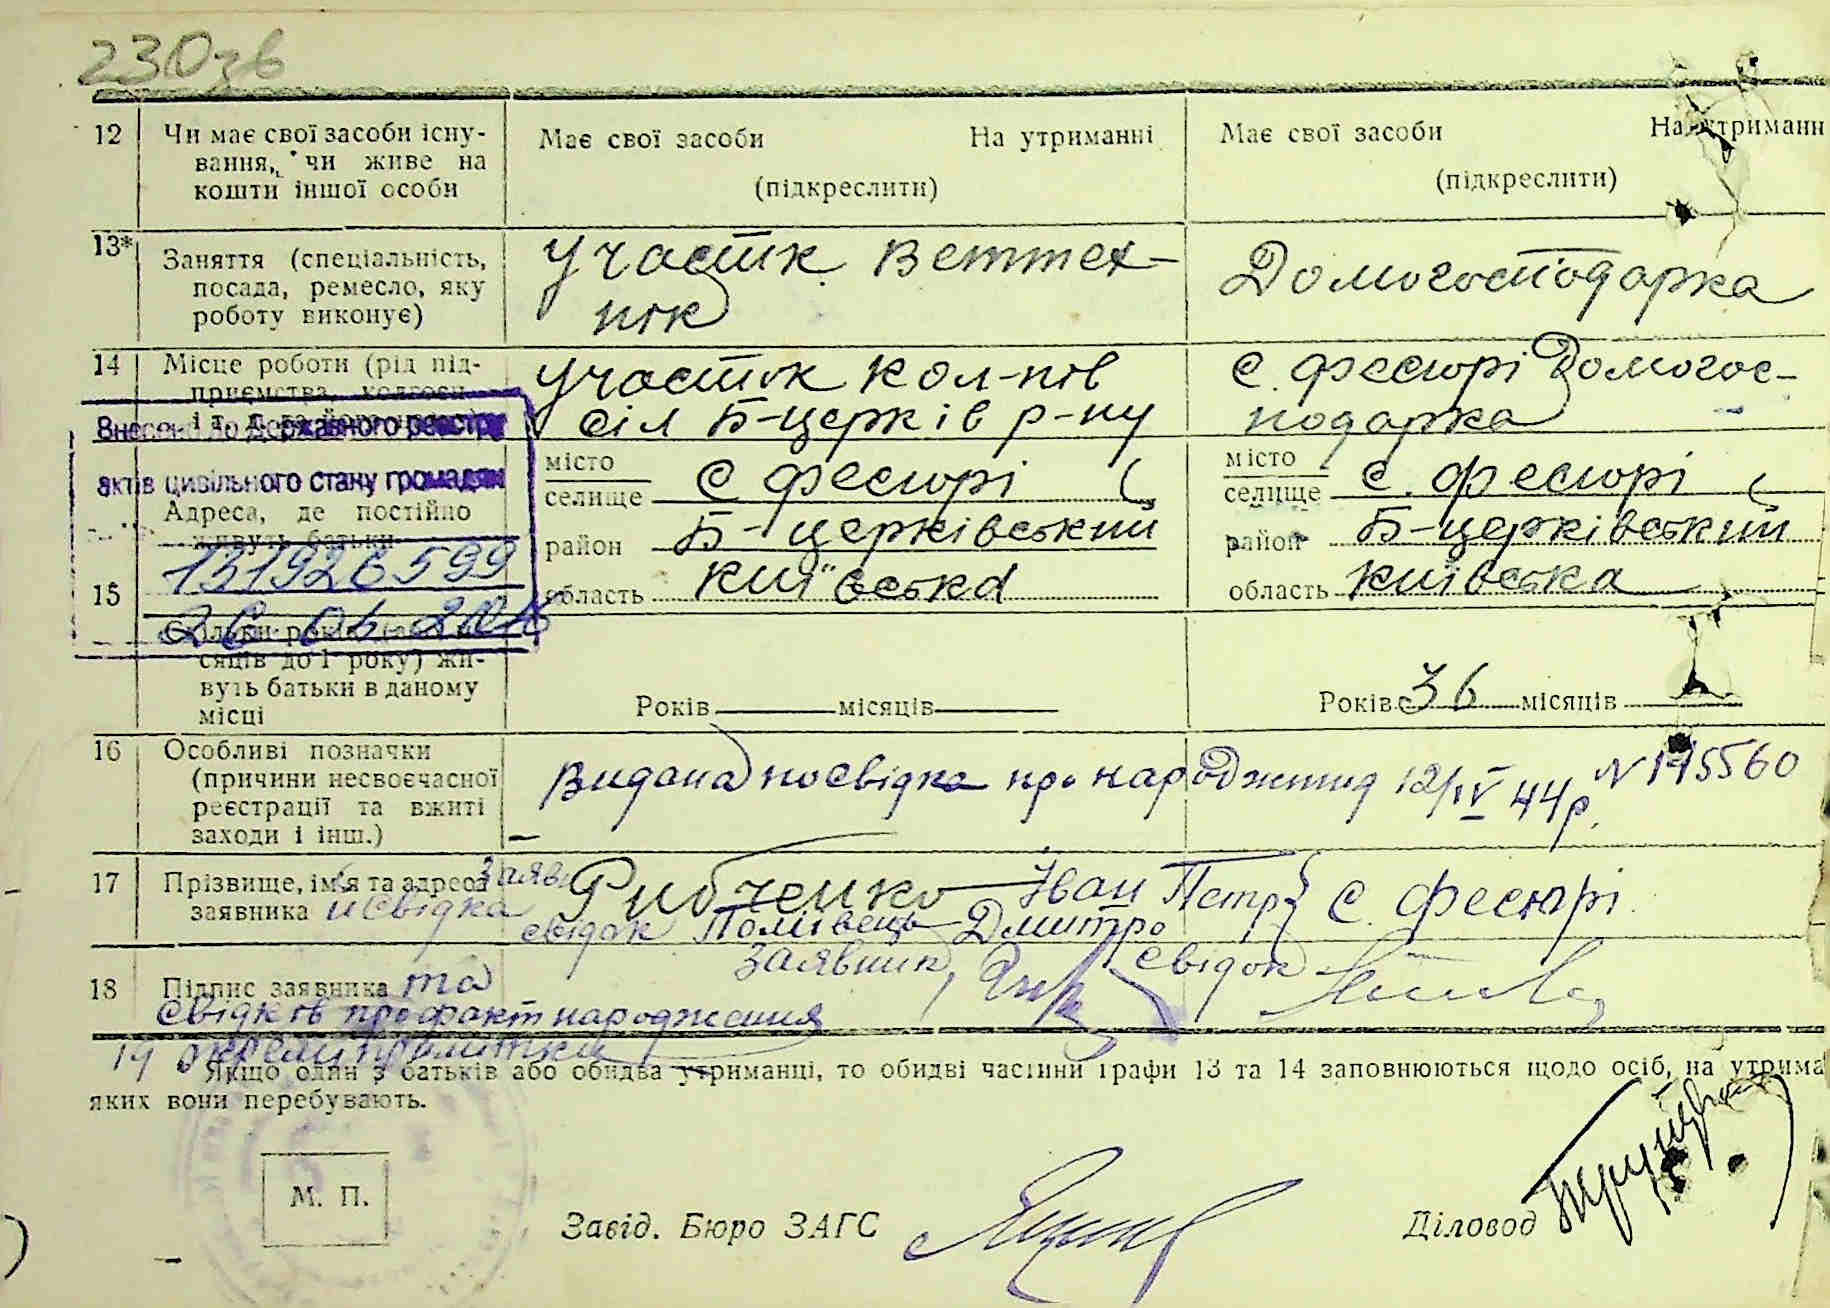 230зв
12 Чи має свої засоби існу- Має свої засоби На утриманні Має свої засоби На утриманн
вання, чи живе на
кошти іншої особи (підкреслити) (підкреслити)
13* Заняття (спеціальність, Участк. Веттех- Домогосподарка
посада, ремесло, яку
роботу виконує) нік
14 Місце роботи (рід під- Участок кол-пів с. Фесюрі Домогос-
приємства, колгосп
сіл Б-церків р-ну подарка
Внесено до Державного реєстру
актів цивільного стану громадян
місто с Фесюрі місто с. Фесюрі
селище селище
Адреса, де постійно
живуть батьки
район Б-церківський район Б-церківський
131926599
15 область Київська область Київська
Скільки років
сяців до 1 року) жи-
вуть батьки в даному
місці Років місяців Років 36 місяців
16 Особливі позначки
(причини несвоєчасної Видана посвідка про народження 12/IV 44р. N 195560
реєстрації та вжиті
заходи і інш.)
17 Прізвище, ім'я та адреса Рибченко Іван Петр с. Фесюрі
заявника и свідка свідок Дмитро
заявник свідок
18 Підпис заявника та
свідків про факт народження
19
Якщо один з батьків або обидва утриманці, то обидві частини графи 13 та 14 заповнюються щодо осіб, на утрима
яких вони перебувають.
М. П.
Завід. Бюро ЗАГС Діловод